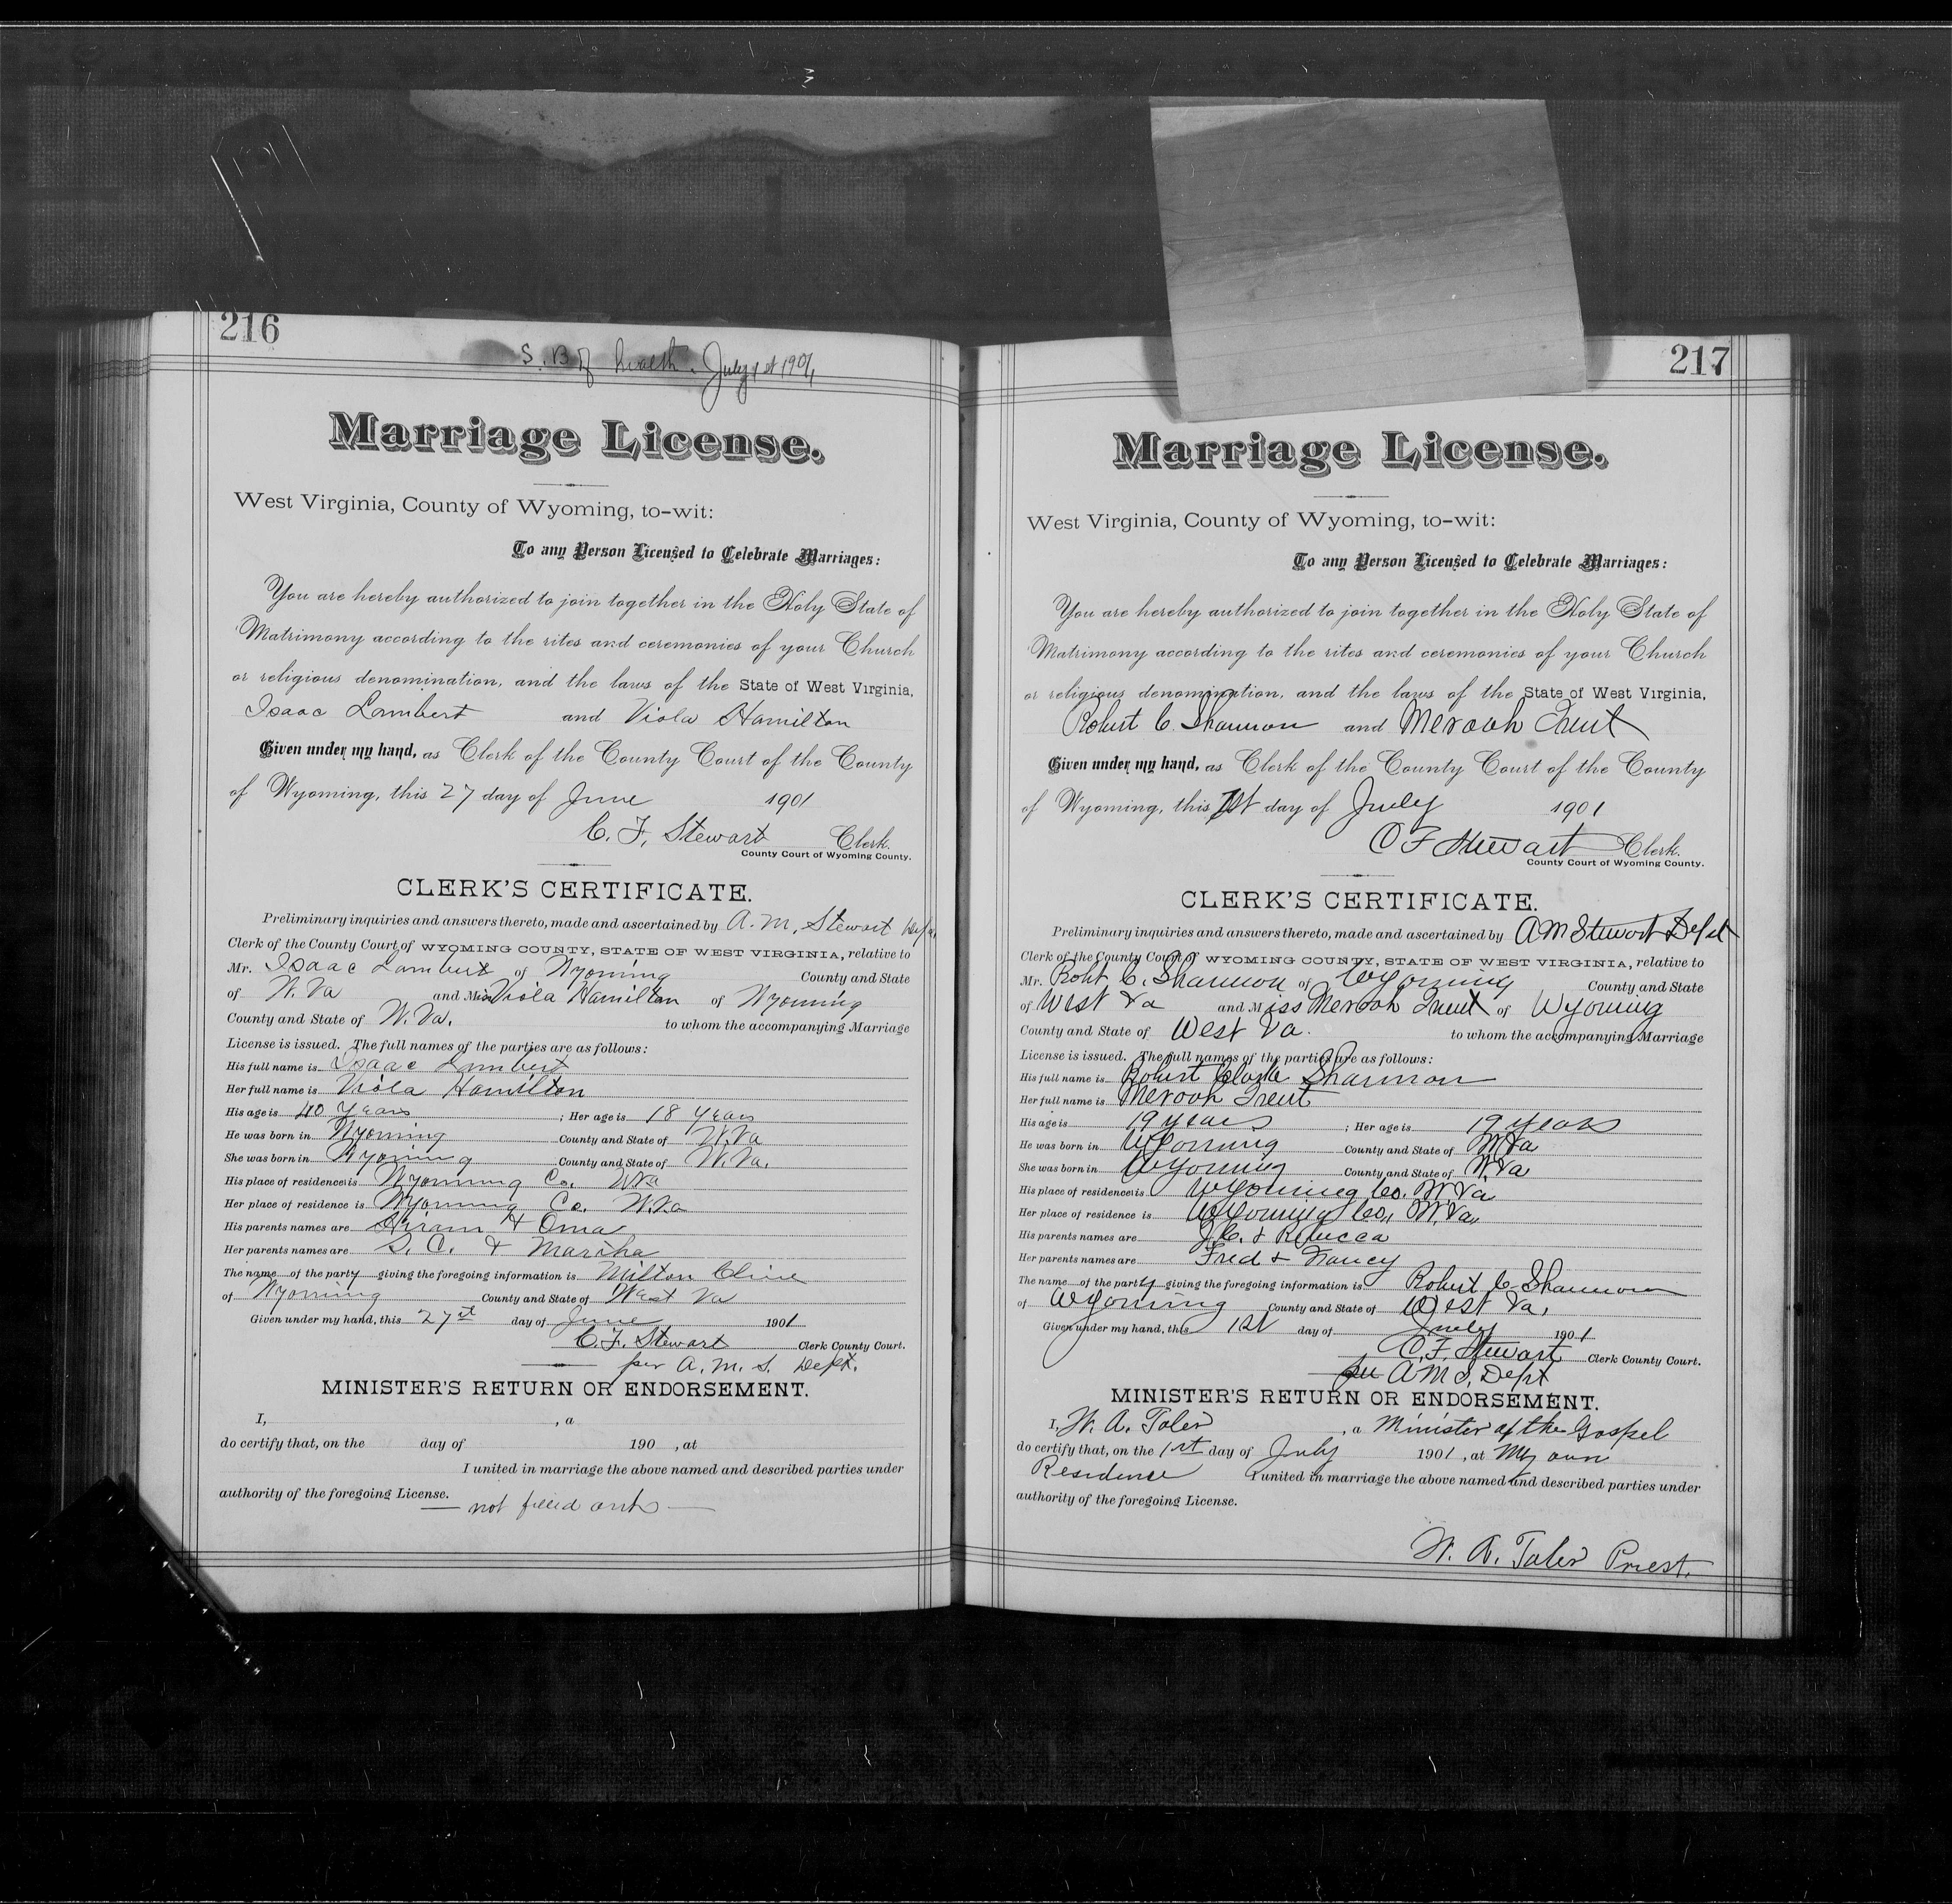 216
S. B of health. July 1st 1901
Marriage License.
West Virginia, County of Wyoming, to-wit:
To any Person Licensed to Celebrate Marriages:
You are hereby authorized to join together in the Holy State of
Matrimony according to the rites and ceremonies of your Church
or religious denomination, and the laws of the State of West Virginia,
Isaac Lambert and Viola Hamilton
Given under my hand, as Clerk of the County Court of the County
of Wyoming, this 27 day of June 1901
C. F. Stewart Clerk.
County Court of Wyoming County.
CLERK'S CERTIFICATE.
Preliminary inquiries and answers thereto, made and ascertained by A. M. Stewart
Clerk of the County Court of WYOMING COUNTY, STATE OF WEST VIRGINIA, relative to
Mr. Isaac Lambert of Wyoming County and State
of W. Va and Miss Viola Hamilton of Wyoming
County and State of W. Va. to whom the accompanying Marriage
License is issued. The full names of the parties are as follows:
His full name is Isaac Lambert
Her full name is Viola Hamilton
His age is 40 years ; Her age is 18 years
He was born in Wyoming County and State of W. Va
She was born in Wyoming County and State of W. Va.
His place of residence is Wyoming Co. W Va
Her place of residence is Wyoming Co. W. Va
His parents names are Hiram & Oma
Her parents names are S. C. & Martha
The name of the party giving the foregoing information is Milton Cline
of Wyoming County and State of West Va
Given under my hand, this 27st day of June 1901
C. F. Stewart Clerk County Court.
per A. M. S. Dept.
MINISTER'S RETURN OR ENDORSEMENT.
I, , a
do certify that, on the day of 190 , at
I united in marriage the above named and described parties under
authority of the foregoing License.
— not filled out —
217
Marriage License.
West Virginia, County of Wyoming, to-wit:
To any Person Licensed to Celebrate Marriages:
You are hereby authorized to join together in the Holy State of
Matrimony according to the rites and ceremonies of your Church
or religious denomination, and the laws of the State of West Virginia,
Robert C. Shannon and Merooh Trent
Given under my hand, as Clerk of the County Court of the County
of Wyoming, this 1st day of July 1901
C F Stewart Clerk.
County Court of Wyoming County.
CLERK'S CERTIFICATE.
Preliminary inquiries and answers thereto, made and ascertained by A M Stewart Dept
Clerk of the County Court of WYOMING COUNTY, STATE OF WEST VIRGINIA, relative to
Mr. Robt C. Shannon of Wyoming County and State
of West Va and Miss Merooh Trent of Wyoming
County and State of West Va. to whom the accompanying Marriage
License is issued. The full names of the parties are as follows:
His full name is Robert Clark Shannon
Her full name is Merooh Trent
His age is 19 years ; Her age is 19 years
He was born in Wyoming County and State of W Va
She was born in Wyoming County and State of W Va
His place of residence is Wyoming Co. W. Va
Her place of residence is Wyoming Co., W. Va,
His parents names are J. C. & Rebecca
Her parents names are Fred & Nancy
The name of the party giving the foregoing information is Robert C. Shannon
of Wyoming County and State of West Va.
Given under my hand, this 1st day of July 1901
C. F. Stewart Clerk County Court.
per A M S, Dept
MINISTER'S RETURN OR ENDORSEMENT.
I, W. A. Toler , a Minister of the Gospel
do certify that, on the 1st day of July 1901 , at My own
Residence I united in marriage the above named and described parties under
authority of the foregoing License.
W. A. Toler Priest.